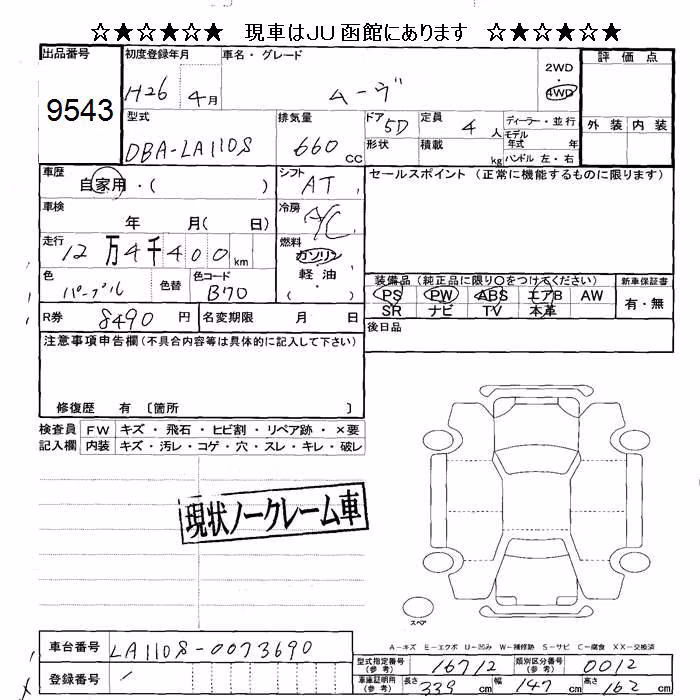 ☆★☆★☆★ 現車はJU函館にあります ☆★☆★☆★
出品番号 初度登録年月 車名・グレード 2WD・4WD 評価点
9543 H26 4月 ムーヴ 外装 内装
型式 排気量 ドア 形状 定員 積載 ディーラー・並行
DBA-LA110S 660cc 5D 4人 kg モデル年式 年 ハンドル 左・右
車歴 自家用・( ) シフト AT セールスポイント(正常に機能するものに限ります)
車検 年 月( 日) 冷房 A/C
走行 12万4千400km 燃料 ガソリン 軽油 ( )
色 パープル 色替 色コード B70
装備品(純正品に限り○をつけてください) 新車保証書
PS PW ABS エアB AW 有・無
SR ナビ TV 本革
R券 8490円 名変期限 月 日 後日品
注意事項申告欄(不具合内容等は具体的に記入して下さい)
修復歴 有〔箇所 〕
検査員 FW キズ・飛石・ヒビ割・リペア跡・×要
記入欄 内装 キズ・汚レ・コゲ・穴・スレ・キレ・破レ
現状ノークレーム車
スペア
A-キズ E-エクボ U-凹み W-補修跡 S-サビ C-腐食 XX-交換済
車台番号 LA110S-0073690
型式指定番号(参考) 16712 類別区分番号(参考) 0012
登録番号 /
車庫証明用(参考) 長さ 339cm 幅 147cm 高さ 162cm